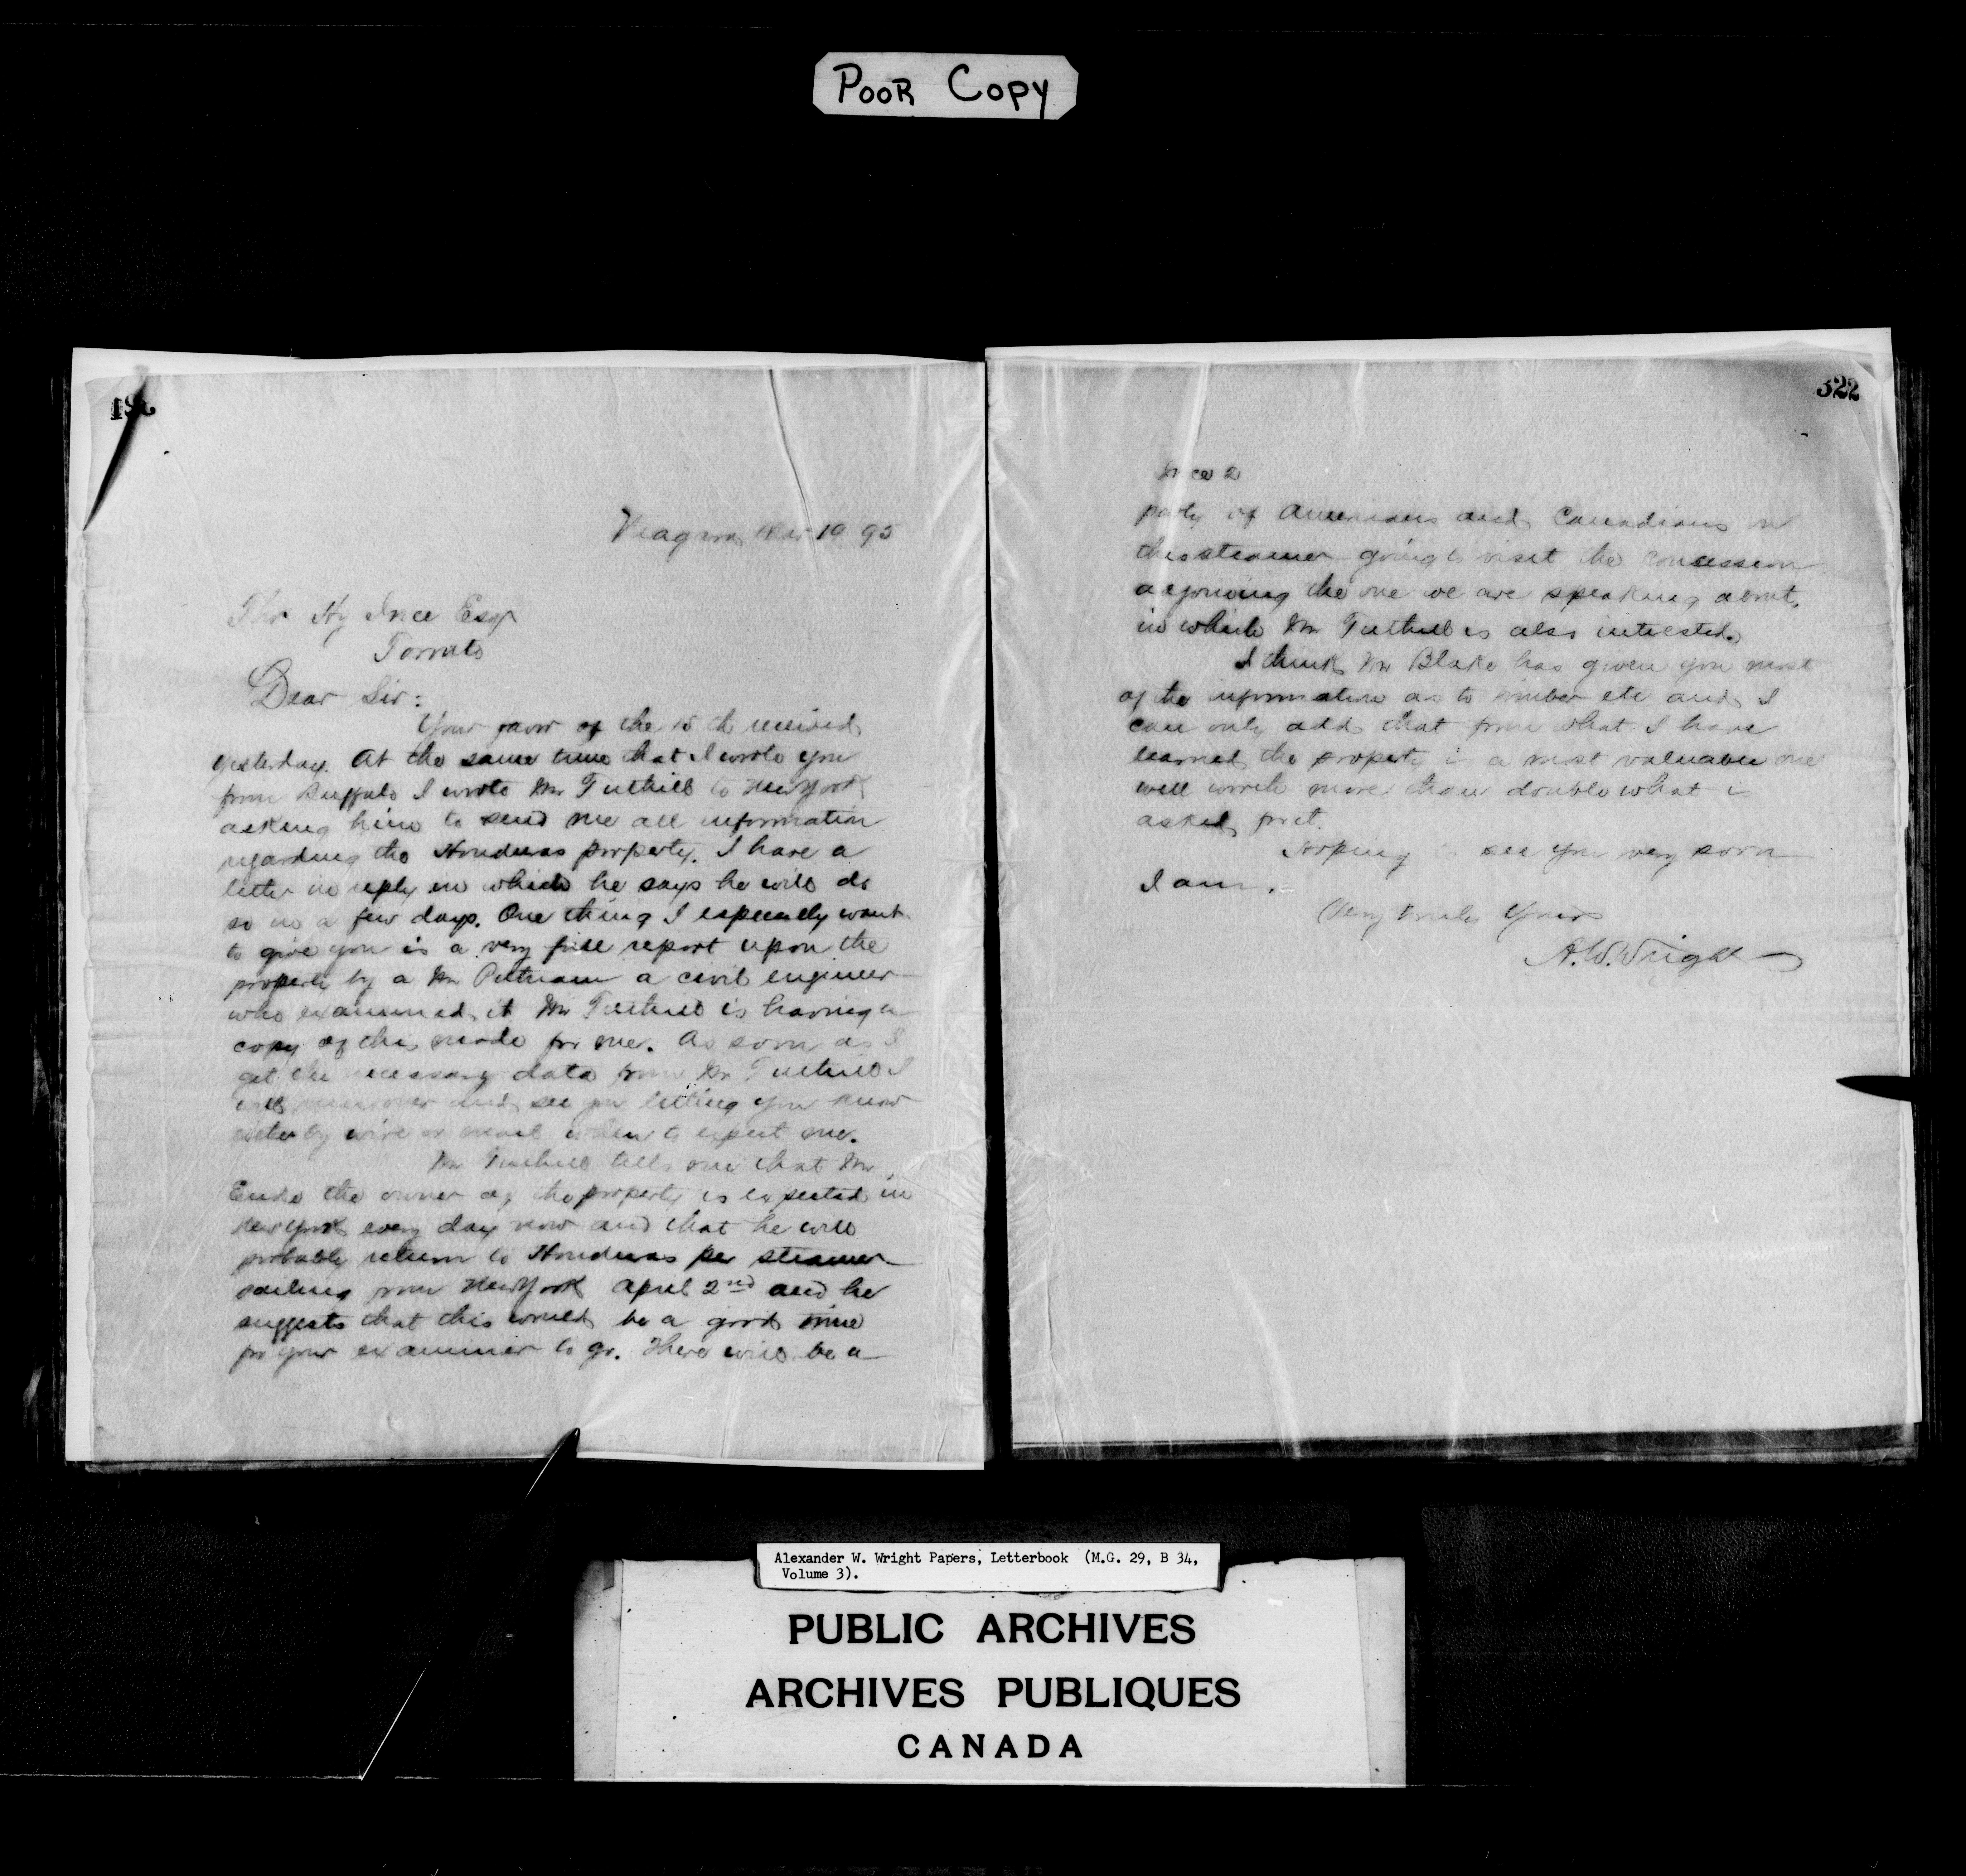 POOR COPY
322
Niagara Mar 19 95
Hy Ince Esq
Toronto
Dear Sir:
Your favor of the 18th received
yesterday. At the same time that I wrote you
from Buffalo I wrote Mr Tuthill to New York
asking him to send me all information
regarding the Honduras property. I have a
letter in reply in which he says he will do
so in a few days. One thing I especially want
to give you is a very full report upon the
property by a Mr Putnam a civil engineer
who examined it Mr Tuthill is having a
copy of this made for me. As soon as I
get the necessary data from Mr Tuthill I
will run over and see you letting you know
either by wire or mail when to expect me.
Mr Tuthill tells me that Mr
the owner of the property is expected in
New York every day now and that he will
probably return to Honduras per steamer
sailing from New York April 2nd and he
suggests that this would be a good time
for your examiner to go. There will be a
Ince 2
party of Americans and Canadians on
this steamer going to visit the concession
adjoining the one we are speaking about,
in which Mr Tuthill is also interested.
I think Mr Blake has given you most
of the information as to timber etc and I
can only add that from what I have
learned the property is a most valuable one
well worth more than double what is
asked for it.
Hoping to see you very soon
I am.
Very truly Yours
A.W. Wright
Alexander W. Wright Papers, Letterbook (M.G. 29, B 34,
Volume 3).
PUBLIC ARCHIVES
ARCHIVES PUBLIQUES
CANADA